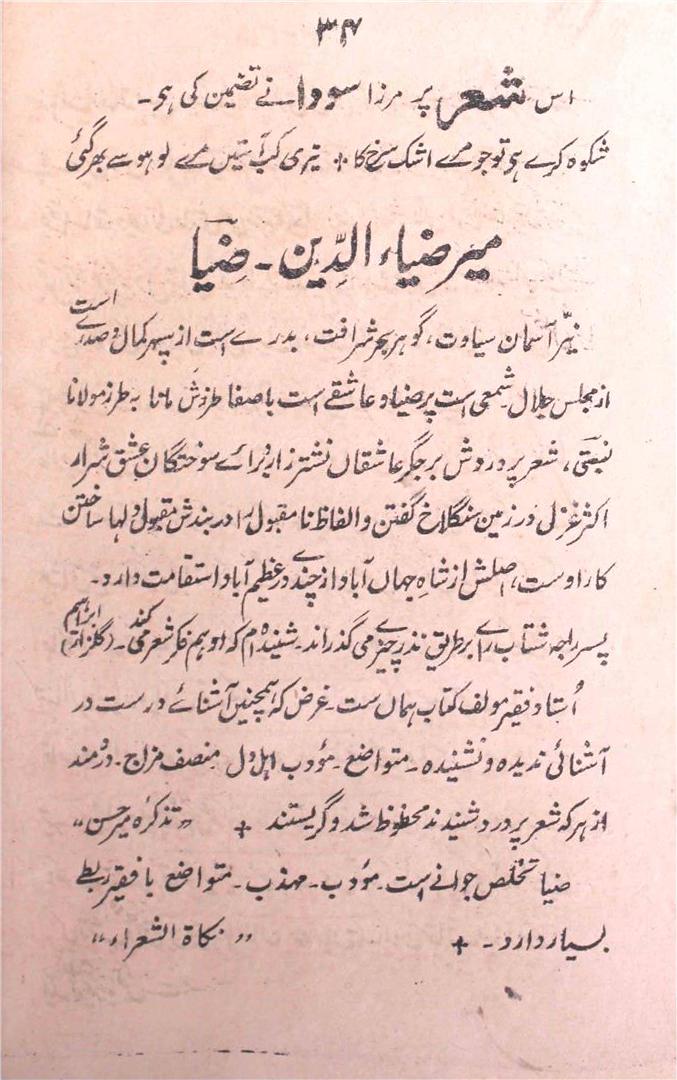 ۳۴
اس شعر پر مرزا سودا نے تضمین کی ہی۔
شکوہ کرے ہی تو جو مے اشک سرخ کا + تیری کب آستیں مے لوہو سے بھر گئی
میر ضیاء الدین۔ ضیا
نیّر آسمان سیاوت، گوہر بحر شرافت، بدرے است از سپہر کمال و صدرے است
از مجلس جلال شمعی است پرضیا و عاشقے است باصفا طرزش مانا بہ طرز مولانا
نسبتی، شعر پر دردش بر جگر عاشقاں نشتر زار و برائے سوختگان عشق شرار
اکثر غزل در زمین سنگلاخ گفتن و الفاظ نامقبول را در بندش مقبول دلہا ساختن
کار اوست، اصلش از شاہ جہاں آباد از چندے در عظیم آباد استقامت دارد۔
پسر راجہ شتاب رای بر طریق نذر چیزے می گذراند۔ شنیدہ ام کہ او ہم فکر شعر می کند۔ (گلزار ابراہیم)
اُستاد فقیر مولف کتاب ہماں ست۔ غرض کہ ہمچنیں آشنائے درست در
آشنائی ندیدہ و نشنیدہ۔ متواضع۔ مؤدب اہل دل منصف مزاج۔ درمند
از ہر کہ شعر پر درد شنیدند محظوظ شد و گریستند + "تذکرہ میر حسن"
ضیا تخلص جوانے است۔ مؤدب۔ مہذب۔ متواضع با فقیر ربطے
بسیار دارد۔ + "نکاة الشعراء"